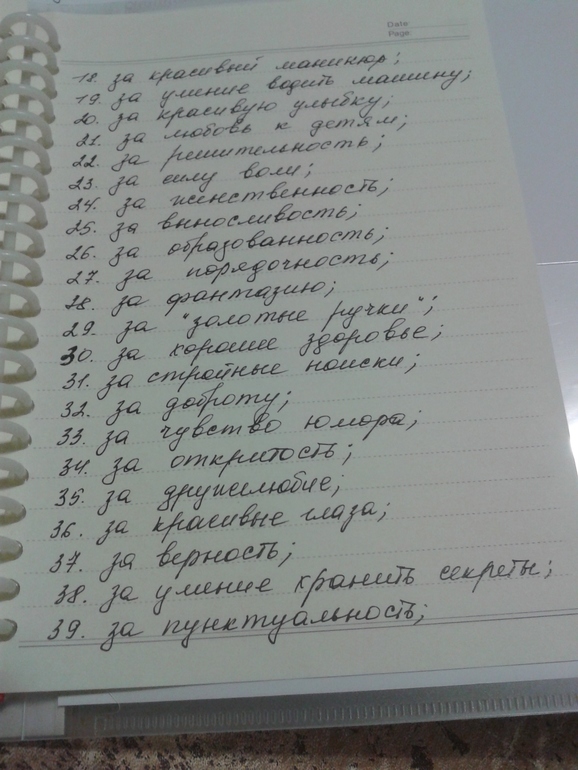 Date
Page
18. за красивый маникюр;
19. за умение водить машину;
20. за красивую улыбку;
21. за любовь к детям;
22. за решительность;
23. за силу воли;
24. за женственность;
25. за выносливость;
26. за образованность;
27. за порядочность;
28. за фантазию;
29. за "золотые ручки";
30. за хорошее здоровье;
31. за стройные ножки;
32. за доброту;
33. за чувство юмора;
34. за открытость;
35. за дружелюбие;
36. за красивые глаза;
37. за верность;
38. за умение хранить секреты;
39. за пунктуальность;